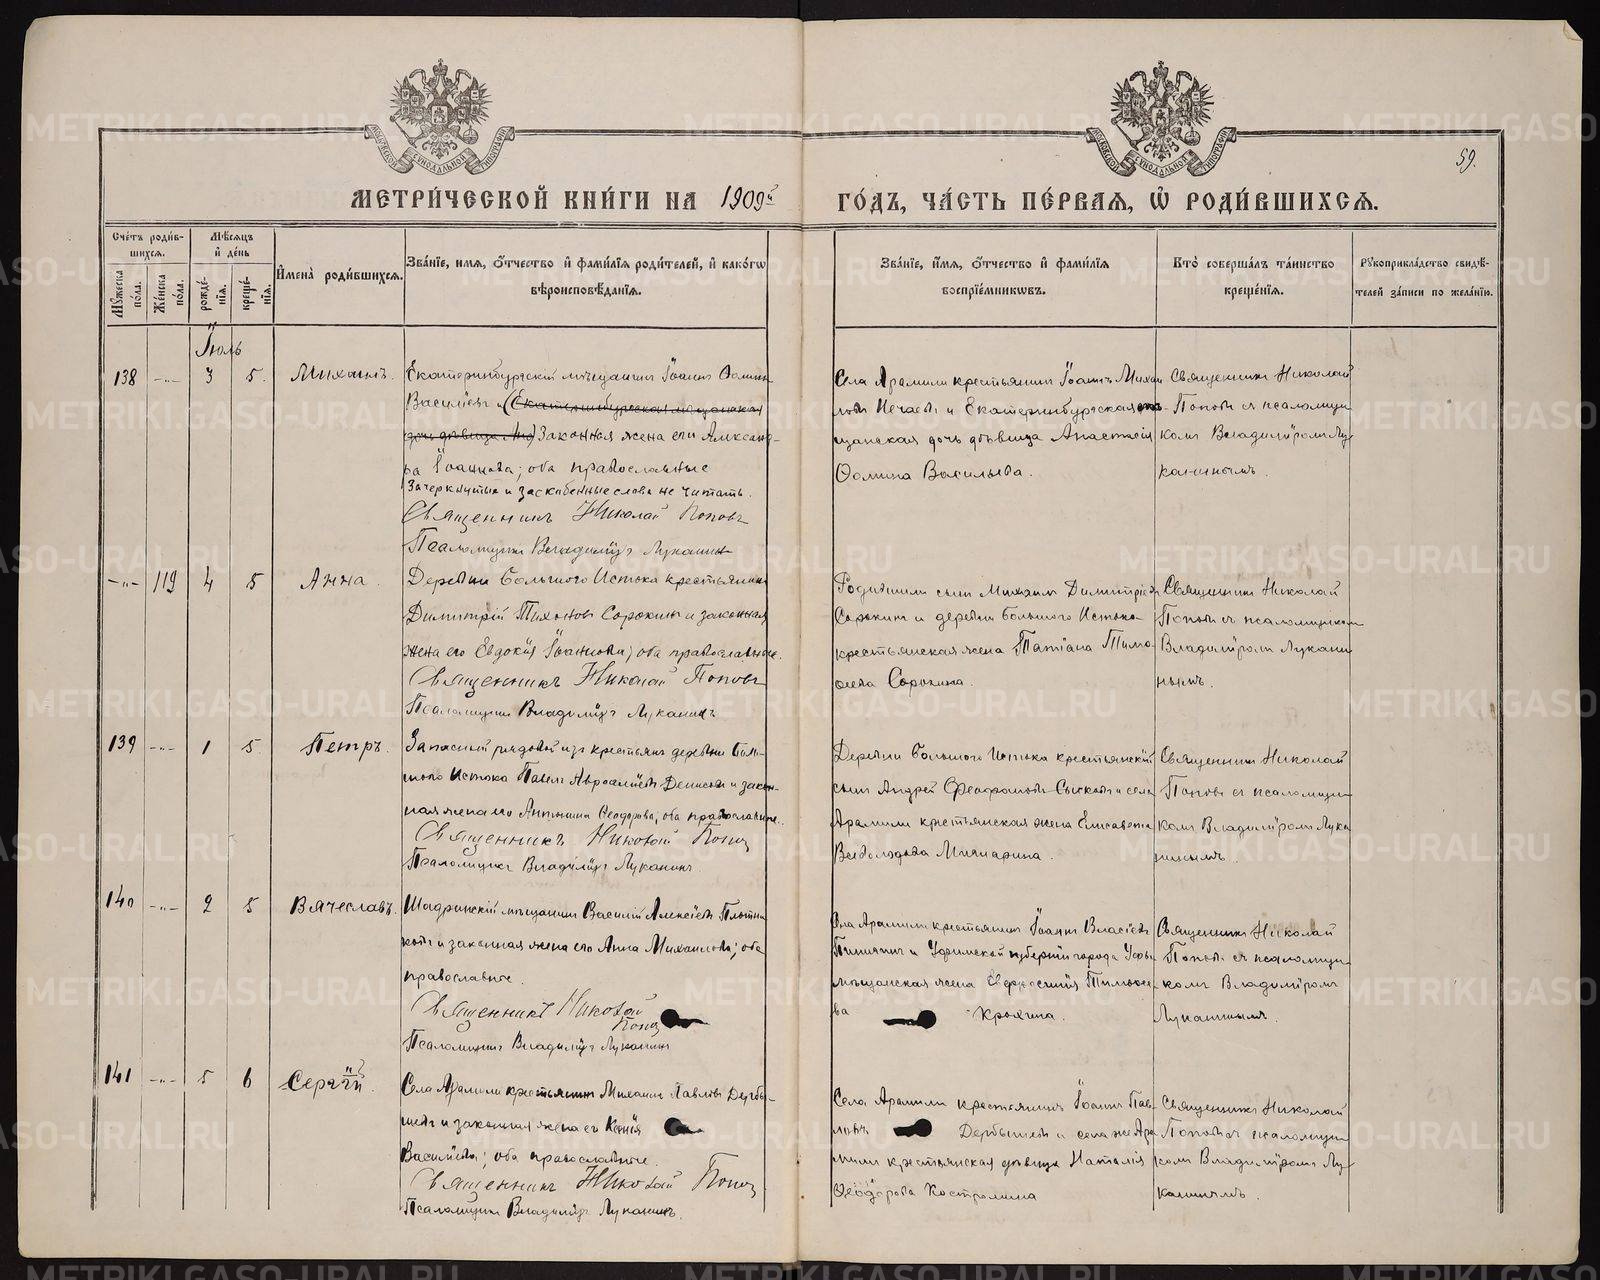 МОСКОВСКОЙ СѴНОДАЛЬНОЙ ТИПОГРАФІИ
МОСКОВСКОЙ СѴНОДАЛЬНОЙ ТИПОГРАФІИ
59.
МЕТРИ́ЧЕСКОЙ КНИ́ГИ НА 1909й
ГО́ДЪ, ЧА́СТЬ ПЕ́РВАѦ, Ѡ҆ РОДИ́ВШИХСѦ.
Сче́тъ роди́в-
шихсѧ.
Мꙋ́жеска по́ла.
Же́нска по́ла.
Мѣ́сѧцъ
и҆ де́нь
рожде́-
нїѧ.
креще́-
нїѧ.
И҆мена̀ роди́вшихсѧ.
Зва́нїе, имѧ, ѻ҆́тчество и҆ фами́лїѧ роди́телей, и҆ како́гѡ
вѣроисповѣ́данїѧ.
Зва́нїе, и҆́мѧ, ѻ҆́тчество и҆ фами́лїѧ
воспрїе́мникѡвъ.
Кто̀ соверша́лъ та́инство
креще́нїѧ.
Рꙋкоприкла́дство свидѣ́-
телей за́писи по жела́нїю.
Іюль
138 -"- 3 5. Михаилъ.
Екатеринбургскій мѣщанинъ Іоаннъ Ѳоминъ
Васильевъ и (Екатеринбургская мѣщанская
дочь дѣвица Ана) Законная жена его Александ-
ра Іоаннова; оба православные
Зачеркнутые и заскобенные слова не читать.
Священникъ Николай Поповъ
Псаломщикъ Владиміръ Луканинъ
Села Арамили крестьянинъ Іоаннъ Михаи
ловъ Нечаевъ и Екатеринбургская мѣ-
щанская дочь дѣвица Анастасія
Ѳомина Васильева.
Священникъ Николай
Поповъ съ псаломщи
комъ Владиміромъ Лу
канинымъ.
-"- 119 4 5 Анна.
Деревни Большого Истока крестьянинъ
Димитрій Тихоновъ Сорокинъ и законная
жена его Евдокія Іоаннова; оба православные.
Священникъ Николай Поповъ
Псаломщикъ Владиміръ Луканинъ
Родившихъ сынъ Михаилъ Димитріевъ
Сорокинъ и деревни Большого Истока
крестьянская жена Татіана Тимо-
ѳеева Сорокина.
Священникъ Николай
Поповъ съ псаломщикомъ
Владиміромъ Лукани
нымъ.
139 -"- 1 5 Петръ.
Запасной рядовой изъ крестьянъ деревни Боль-
шого Истока Павелъ Авраамовъ Денисовъ и закон-
ная жена его Антонина Ѳеодорова; оба православные.
Священникъ Николай Поповъ
Псаломщикъ Владиміръ Луканинъ
Деревни Большого Истока крестьянскій
сынъ Андрей Феофановъ и села
Арамили крестьянская жена Елисавета
Всеволодова.
Священникъ Николай
Поповъ съ псаломщи
комъ Владиміромъ Лука
нинымъ.
140 -"- 2 5 Вячеславъ.
Шадринскій мѣщанинъ Василій Алексѣевъ Плотни
ковъ и законная жена его Анна Михаилова; оба
православные.
Священникъ Николай
Поповъ
Псаломщикъ Владиміръ Луканинъ
Села Арамили крестьянинъ Іоаннъ Власіевъ
и Уфимской губерніи города Уфы
мѣщанская жена Тимоѳее
ва Крохина.
Священникъ Николай
Поповъ съ псаломщи-
комъ Владиміромъ
Луканинымъ.
141 -"- 5 6 Сергій.
Села Арамили крестьянинъ Михаилъ Павловъ Дербы-
шевъ и законная жена его Ксенія
Васильева; оба православные.
Священникъ Николай Поповъ
Псаломщикъ Владиміръ Луканинъ.
Села Арамили крестьянинъ Іоаннъ Пав-
ловъ Дербышевъ и села же Ара
мили крестьянская дѣвица Наталія
Ѳеодорова Костромина
Священникъ Николай
Поповъ съ псаломщи
комъ Владиміромъ Лу
канинымъ.
METRIKI.GASO-URAL.RU